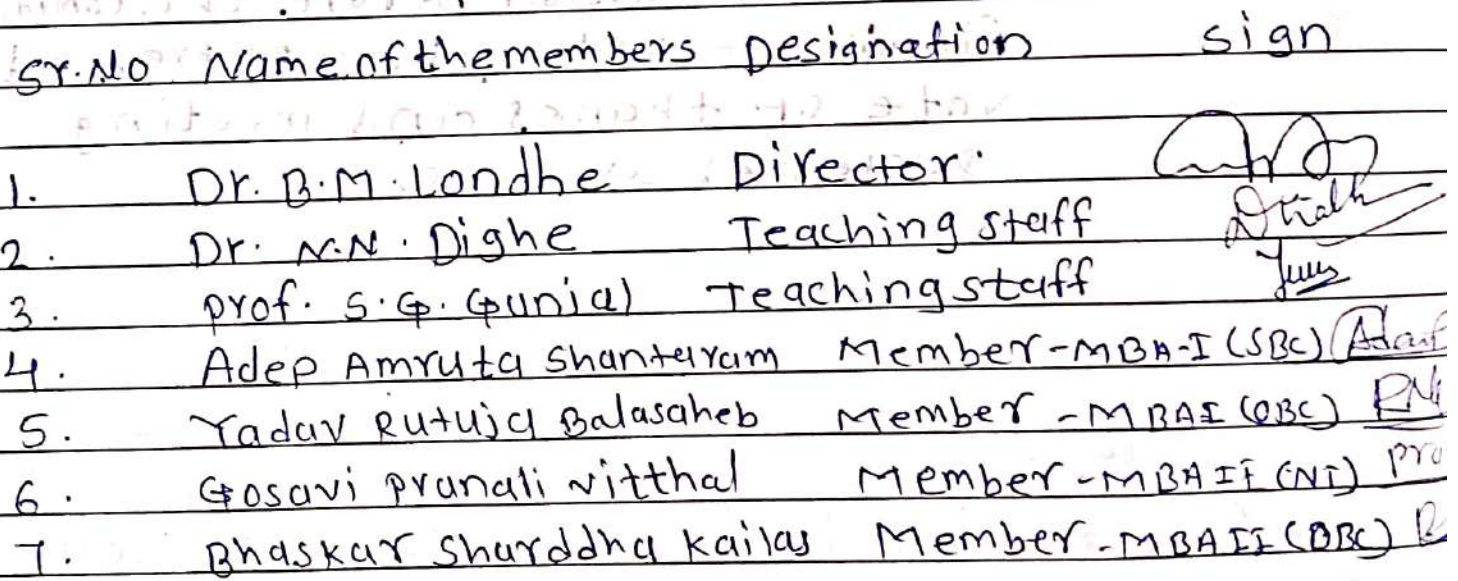 Sr.No Name of the members Designation sign
1. Dr. B.M. Londhe Director.
2. Dr. N.N. Dighe Teaching staff
3. prof. S.G. Gunjal Teaching staff
4. Adep Amruta Shantaram Member-MBA-I (SBC)
5. Yadav Rutuja Balasaheb Member-MBAI (OBC)
6. Gosavi pranali vitthal Member-MBAII (NT)
7. Bhaskar Sharddha Kailas Member-MBAII (OBC)